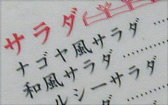 サラダ
ナゴヤ風サラダ
和風サラダ
ルシーサラダ